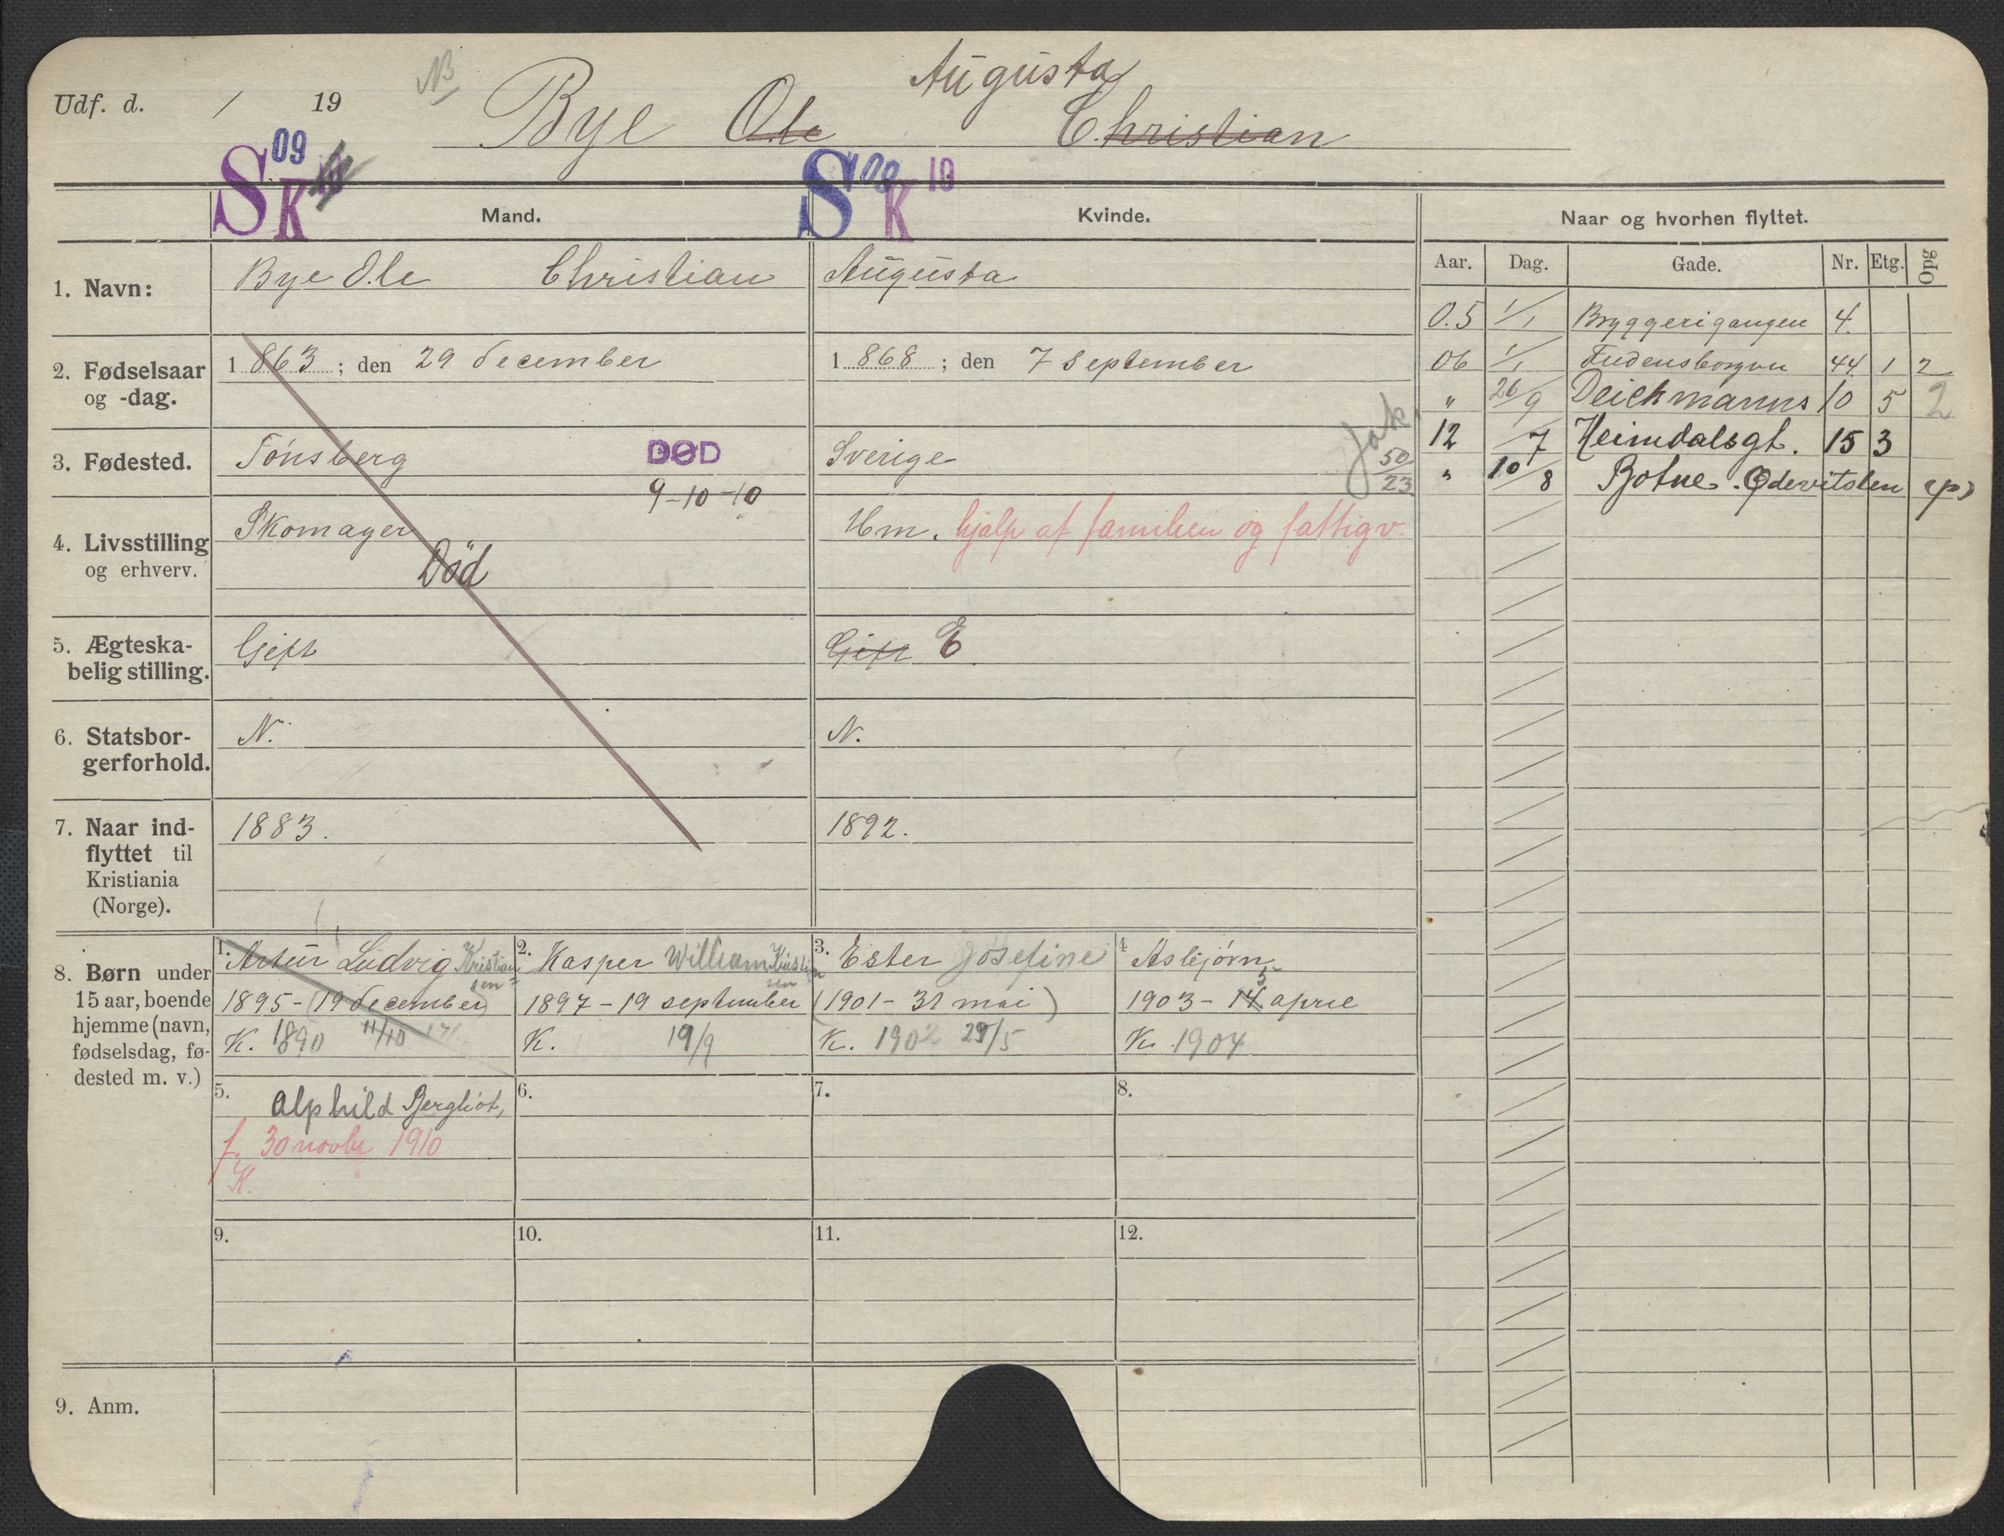 Augusta
Udf. d. / 19 N Bye Ole Christian
09
S K S 09 K 10
Mand. Kvinde. Naar og hvorhen flyttet.
Aar. Dag. Gade. Nr. Etg. Opg
1. Navn: Bye Ole Christian Augusta
05 1/1 Bryggerigangen 4
2. Fødselsaar og -dag. 1863; den 29 december 1868; den 7 september
06 1/1 Fredensborgvn 44 1 2
" 26/9 Deichmanns 10 5 2
3. Fødested. Tønsberg DØD Sverige
9-10-10
50
23
12 /7 Heimdalsgt. 15 3
" 10/8 Botne. Ødevitslen (p)
4. Livsstilling og erhverv. Skomager Hm. hjælp af familien og fattigv.
Død
5. Ægteska-
belig stilling. Gift Gift E
6. Statsbor-
gerforhold. N. N.
7. Naar ind-
flyttet til
Kristiania
(Norge). 1883. 1892.
8. Børn under
15 aar, boende
hjemme (navn,
fødselsdag, fø-
dested m. v.)
1. Artur Ludvig Kristiansen
1895 - (19 december)
K. 1890 11/10
2. Kasper William Kristiansen
1897 - 19 september
K. 19/9
3. Ester Josefine
(1901 - 31 mai)
K. 1902 29/5
4 Asbjørn
1903 - 14 5 april
K. 1904
5. Alphild Bergliot,
f. 30 novbr 1910
K.
6.
7.
8.
9.
10.
11.
12.
9. Anm.